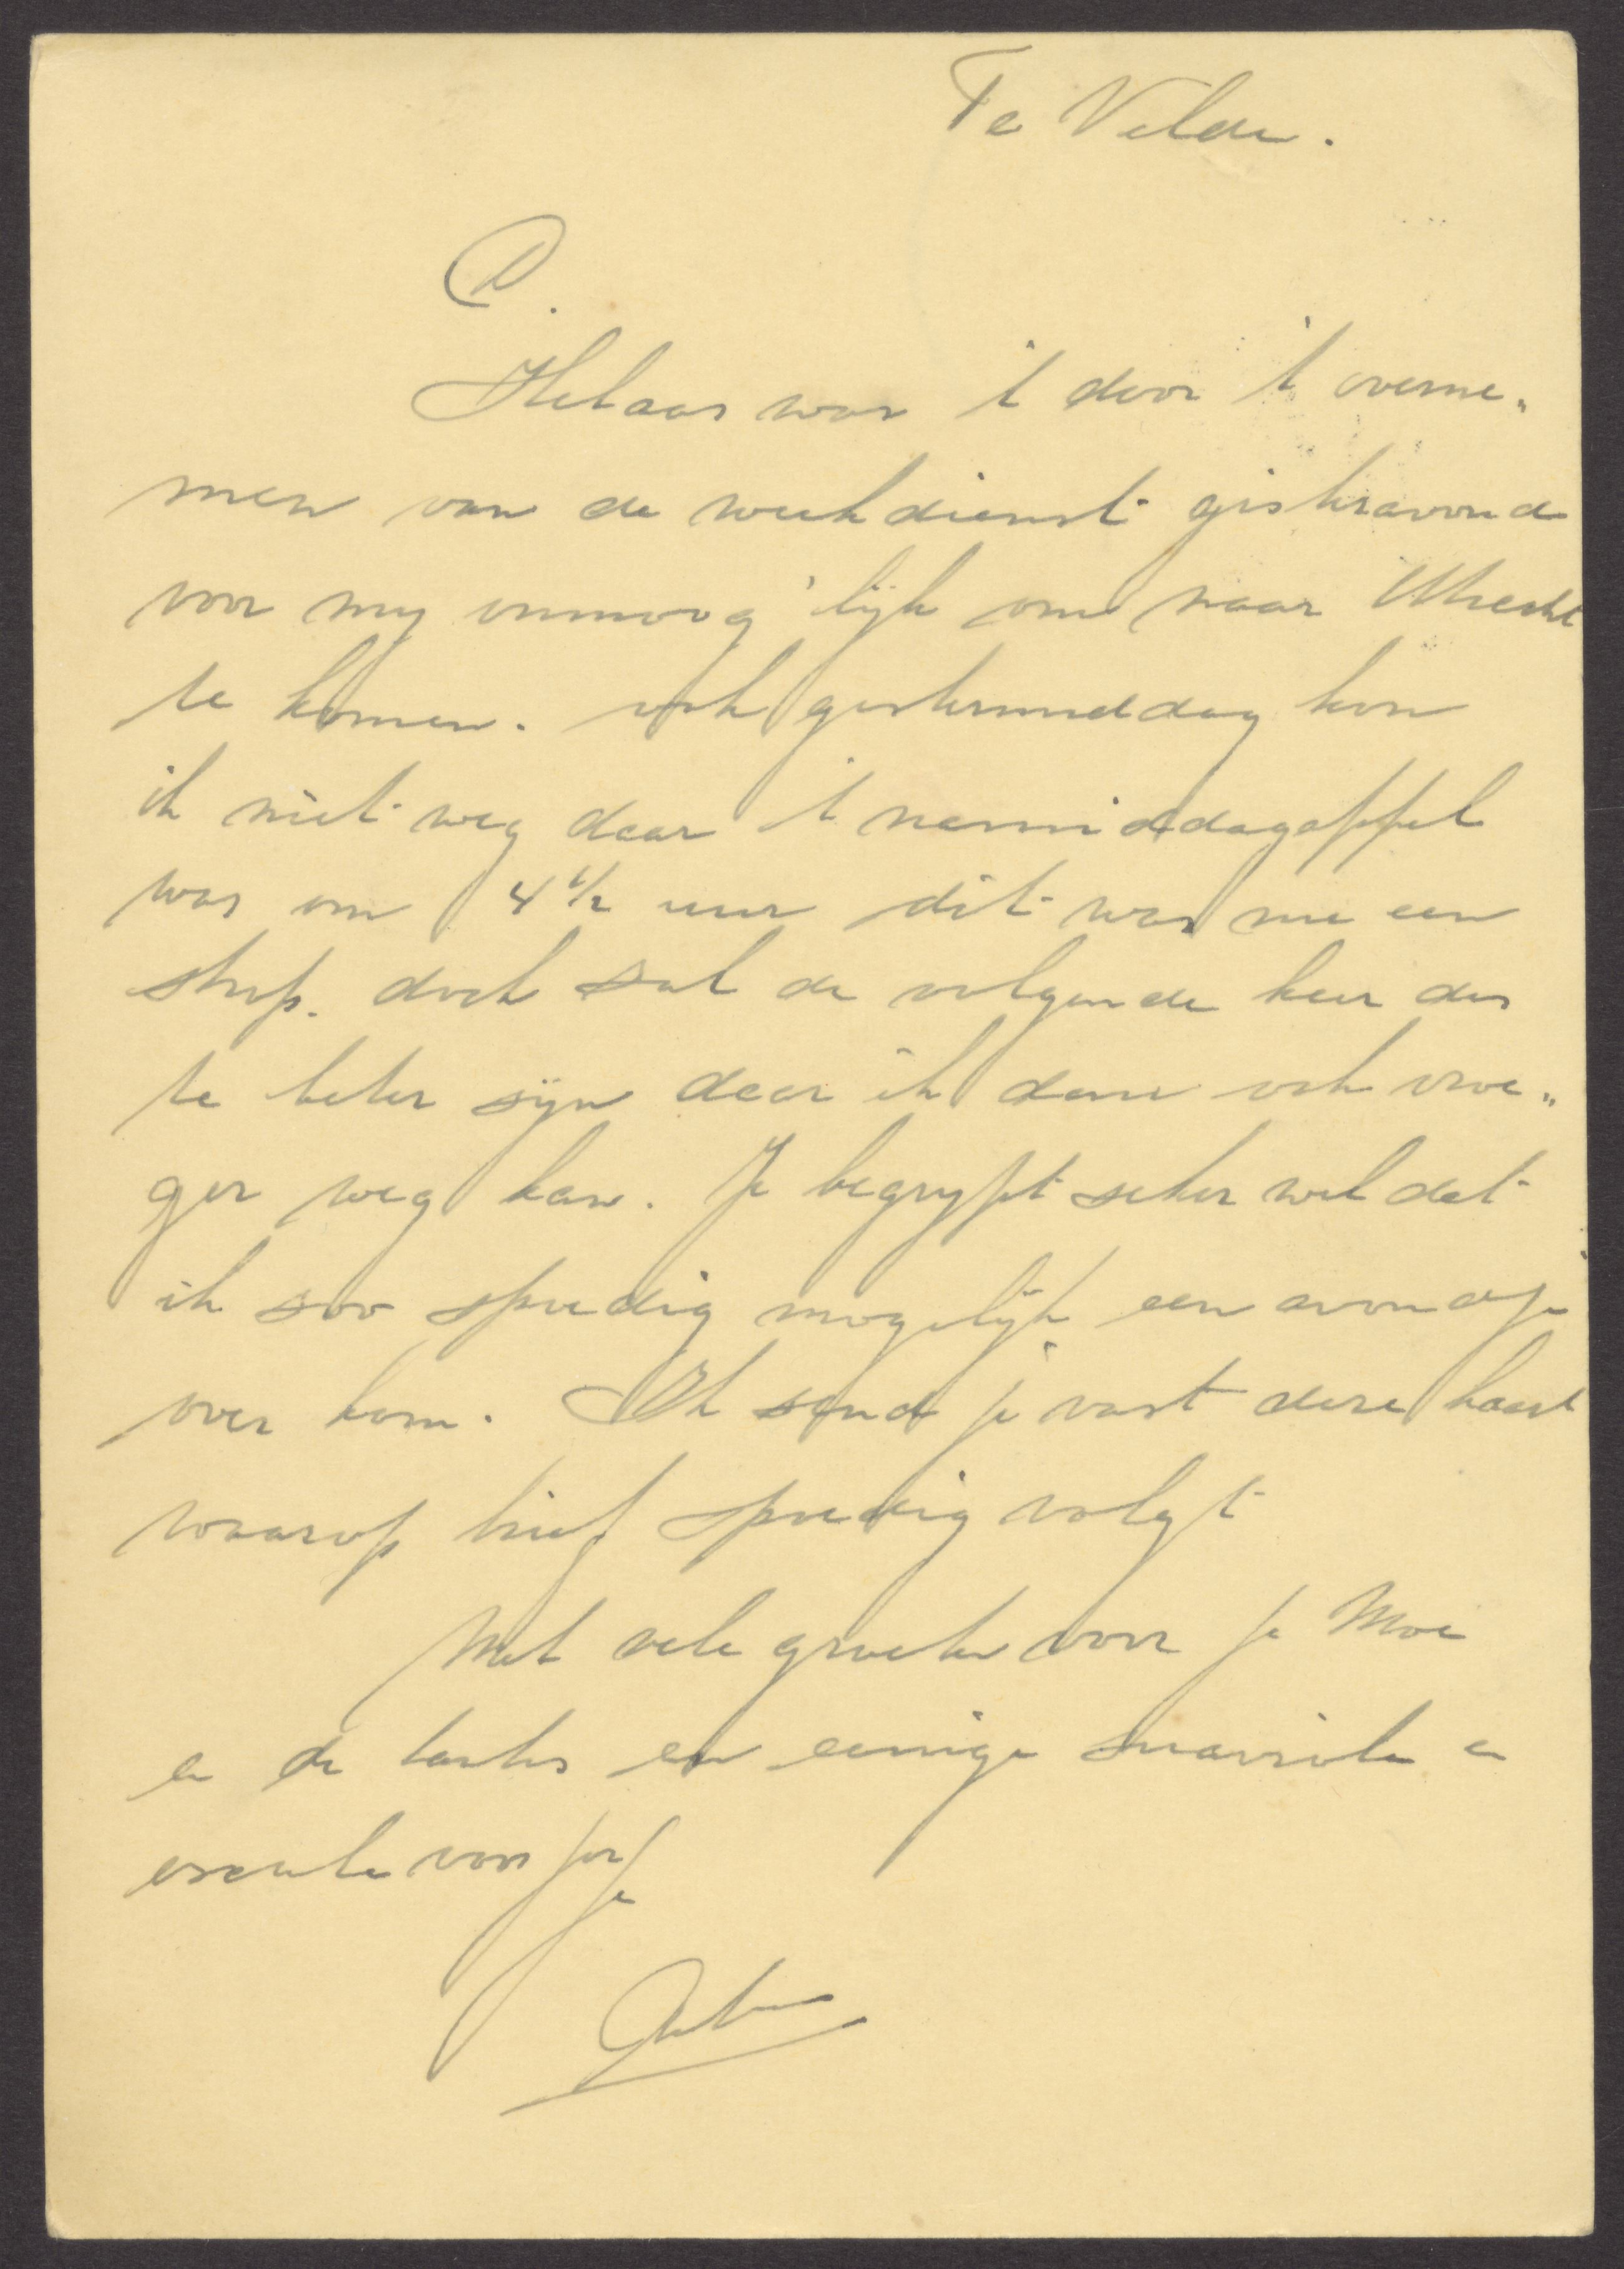 Te Velde.
Helaas was 't door 't overne„
men van de weekdienst gisteravond
voor my onmoog'lijk om naar Utrecht
te komen. ook gistermiddag kon
ik niet weg daar 't namiddagappel
was om 4 1/2 uur dit was me een
strop. doch sal de volgende keer des
te beter sijn daar ik dan ook vroe„
ger weg kan. Je begrypt seker wel dat
ik soo spoedig mogelijk een avondje
over kom. Ik send je vast deze kaart
waarop brief spoedig volgt
Met vele groeten voor je Moe
en de tantes en eenige en
voor jou
je